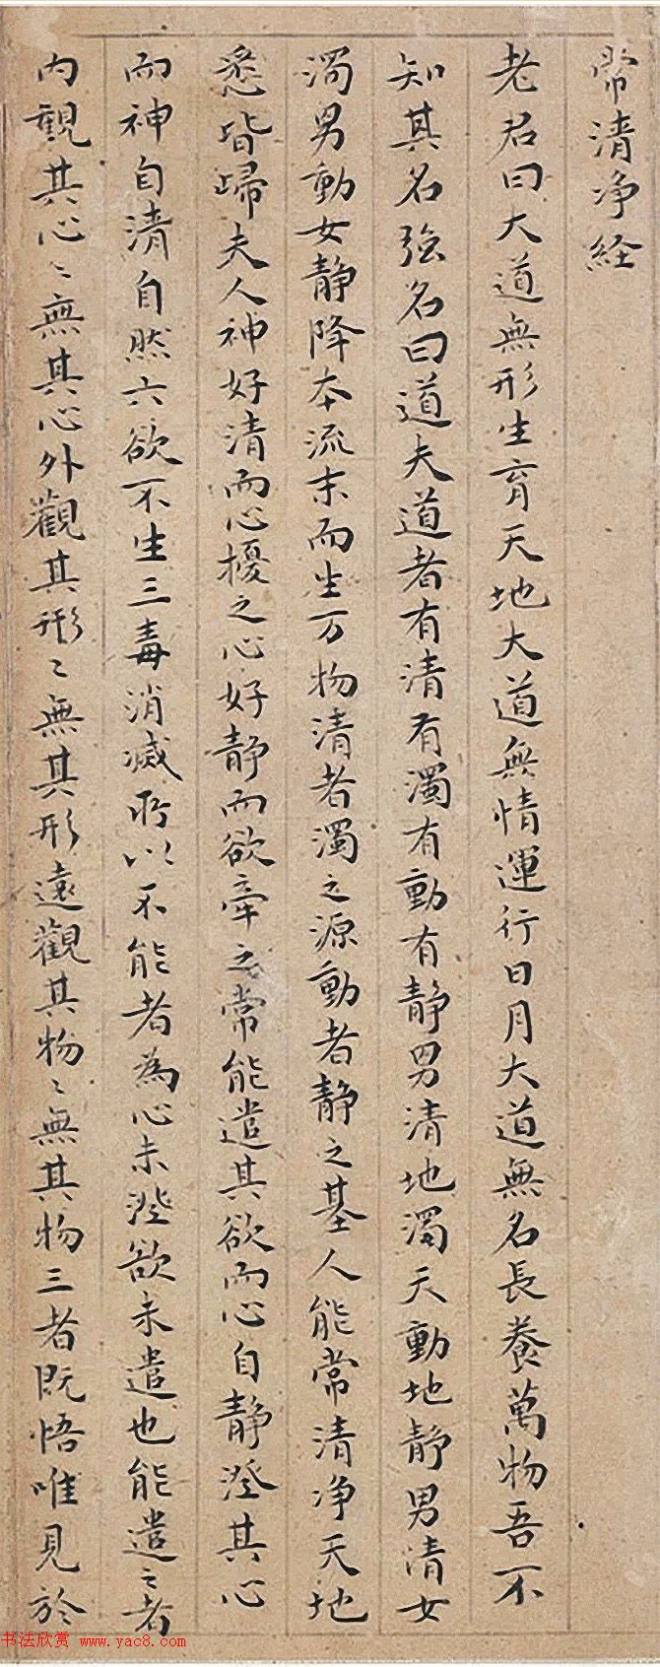 常清净経
老君曰大道無形生育天地大道無情運行日月大道無名長養萬物吾不
知其名強名曰道夫道者有清有濁有動有静男清地濁天動地静男清女
濁男動女静降本流末而生万物清者濁之源動者静之基人能常清净天地
悉皆歸夫人神好清而心擾之心好静而欲牽之常能遣其欲而心自静澄其心
而神自清自然六欲不生三毒消滅所以不能者為心未澄欲未遣也能遣之者
内觀其心〻無其心外觀其形〻無其形遠觀其物〻無其物三者既悟唯見於
书法欣赏 www.yac8.com